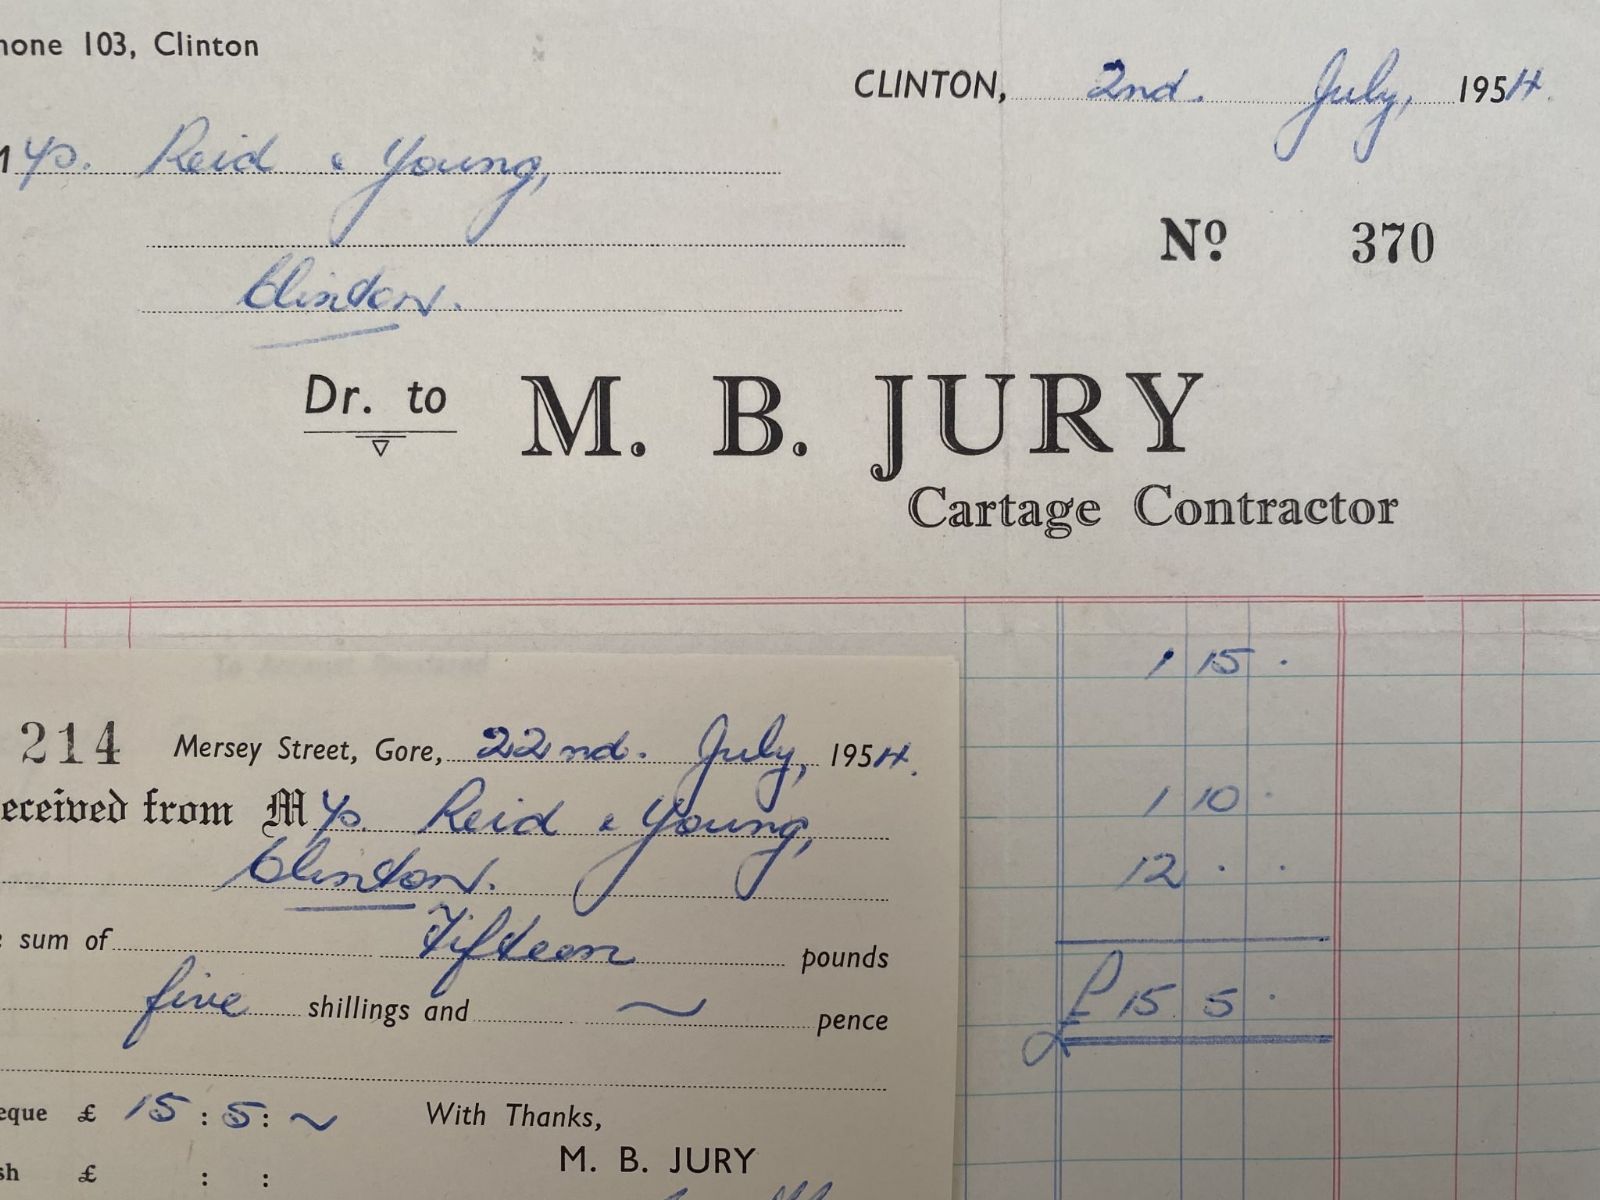 hone 103, Clinton
CLINTON, 2nd. July, 1954.
M/s. Reid & Young,
Clinton.
No 370
Dr. to M. B. JURY
Cartage Contractor
To Account Rendered
1 15 .
1 10 .
12 . .
£15 5 .
214 Mersey Street, Gore, 22nd. July, 1954.
eceived from M/s. Reid & Young,
Clinton.
sum of Fifteen pounds
five shillings and ~ pence
eque £ 15 : 5 : ~ With Thanks,
sh £ : :
M. B. JURY